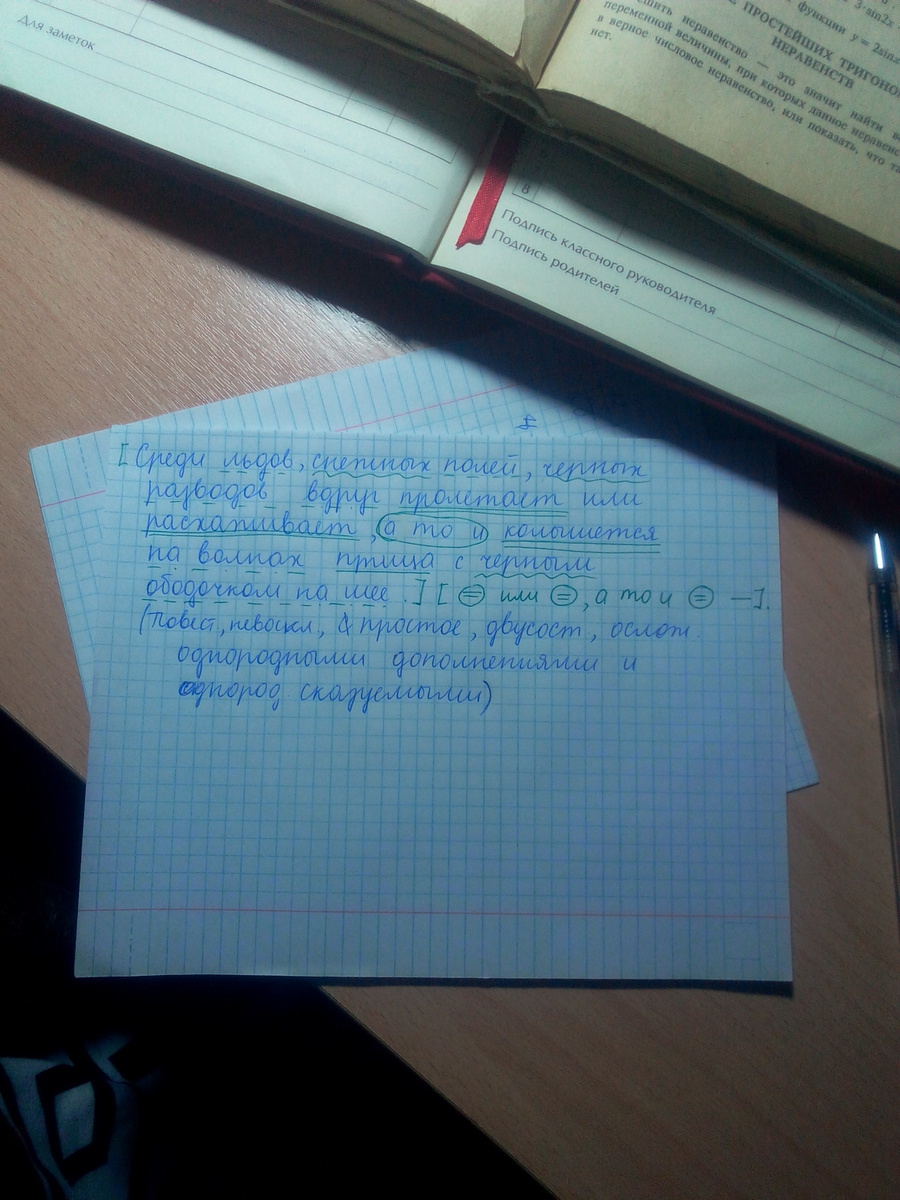 Для заметок
функции y = 2sinx
3·sin2x
ПРОСТЕЙШИХ ТРИГОНО
НЕРАВЕНСТВ
неравенство — это значит найти
переменной величины, при которых данное неравенс
в верное числовое неравенство, или показать, что
нет.
8
Подпись классного руководителя
Подпись родителей
[Среди льдов, снежных полей, черных
разводов вдруг пролетает или
расхаживает, а то и колышется
на волнах птица с черным
ободочком на шее.] [ = или =, а то и = —].
(Повест, невоскл, простое, двусост, ослож.
однородными дополнениями и
однород сказуемыми)